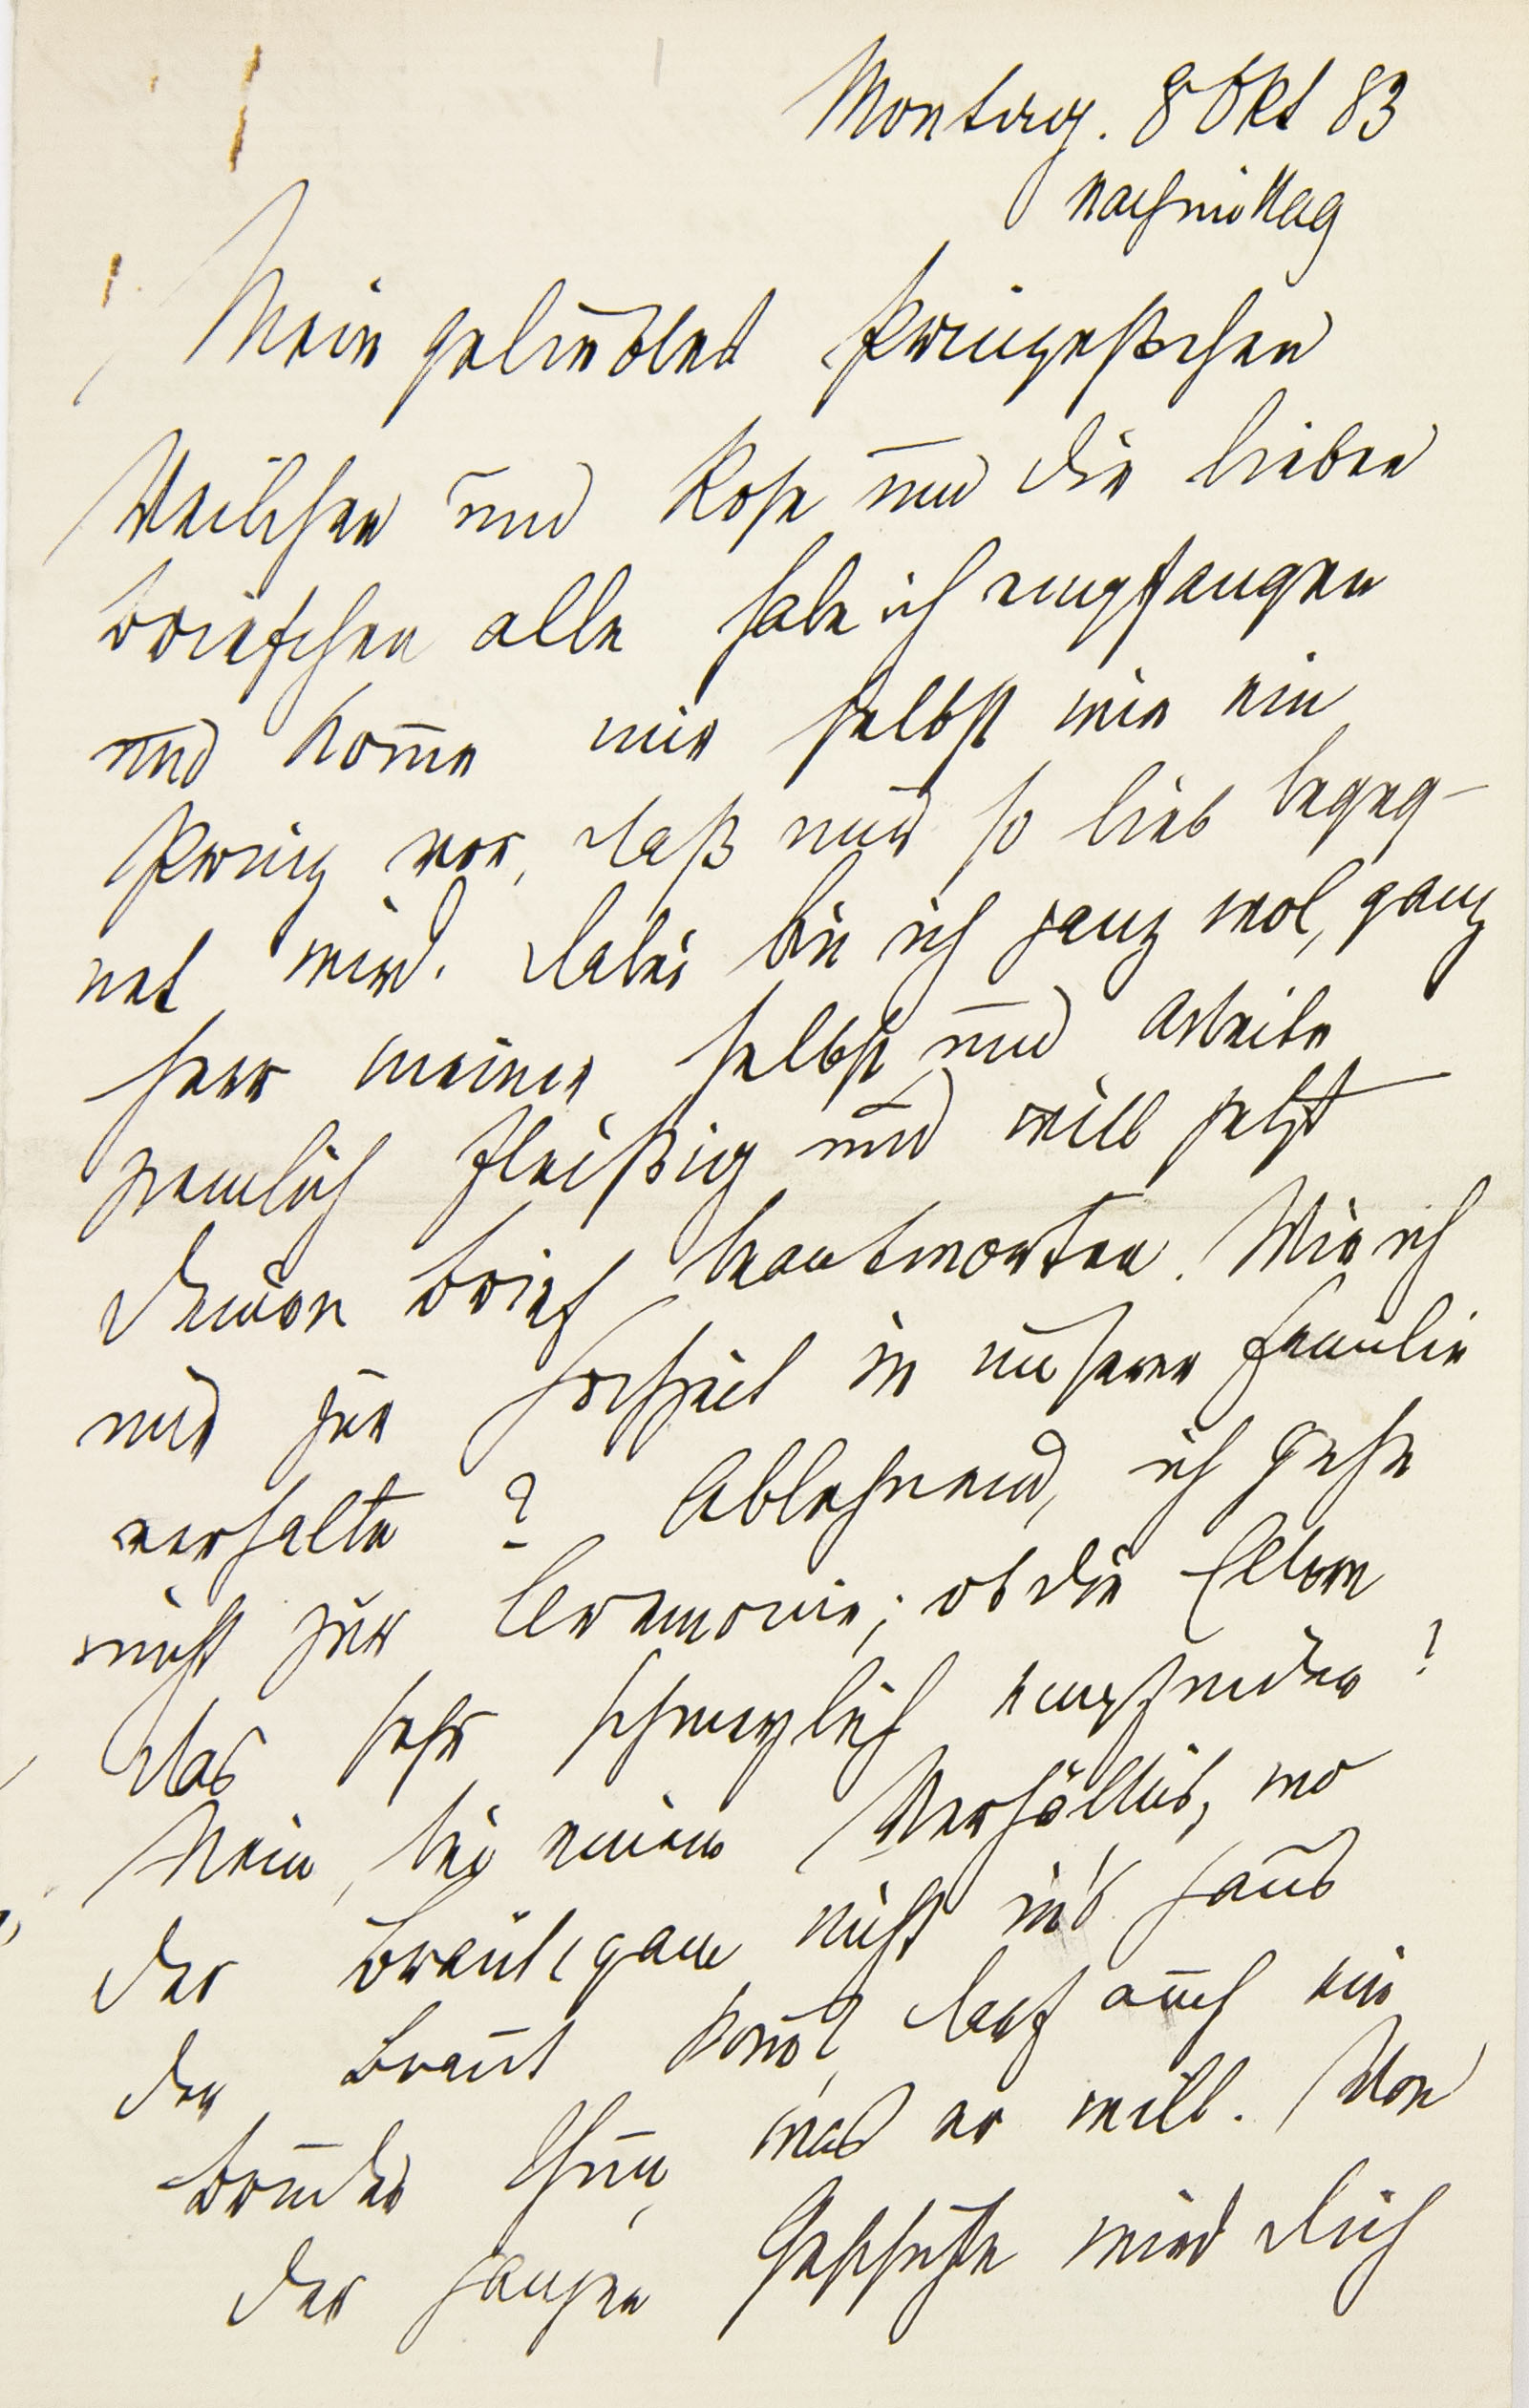 Montag. 8 Okt 83
nachmittag
Mein geliebtes Prinzeßchen
Veilchen und Rose und die lieben
Briefchen alle habe ich empfangen
und kom̅e mir selbst wie ein
Prinz vor, daß mir so lieb begeg-
net wird. Dabei bin ich ganz wol, ganz
Herr meiner selbst und arbeite
ziemlich fleißig und will jetzt
Deinen Brief beantworten. Wie ich
mich zur Hochzeit in unserer Familie
verhalte? Ablehnend, ich gehe
nicht zur Ceremonie; ob die Eltern
das sehr schmerzlich empfinden?
Nein, bei einem Verhältnis, wo
der Bräutigam nicht in's Haus
der Braut kom̅t, darf auch ein
Bruder thun, was er will. Von
der ganzen Geschichte wird Dich